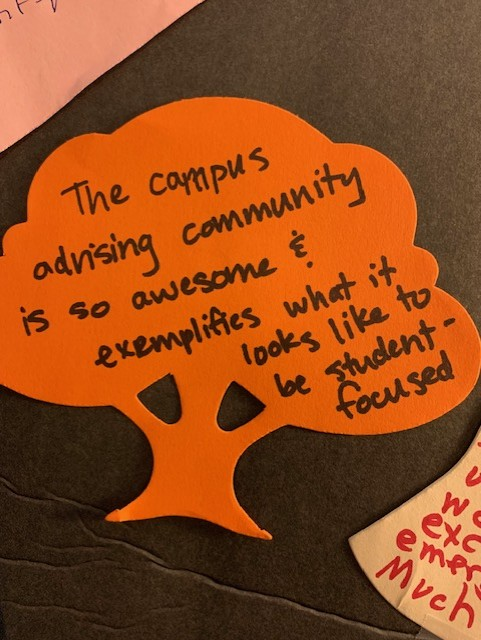 The campus
advising community
is so awesome &
exemplifies what it
looks like to
be student-
focused
Much